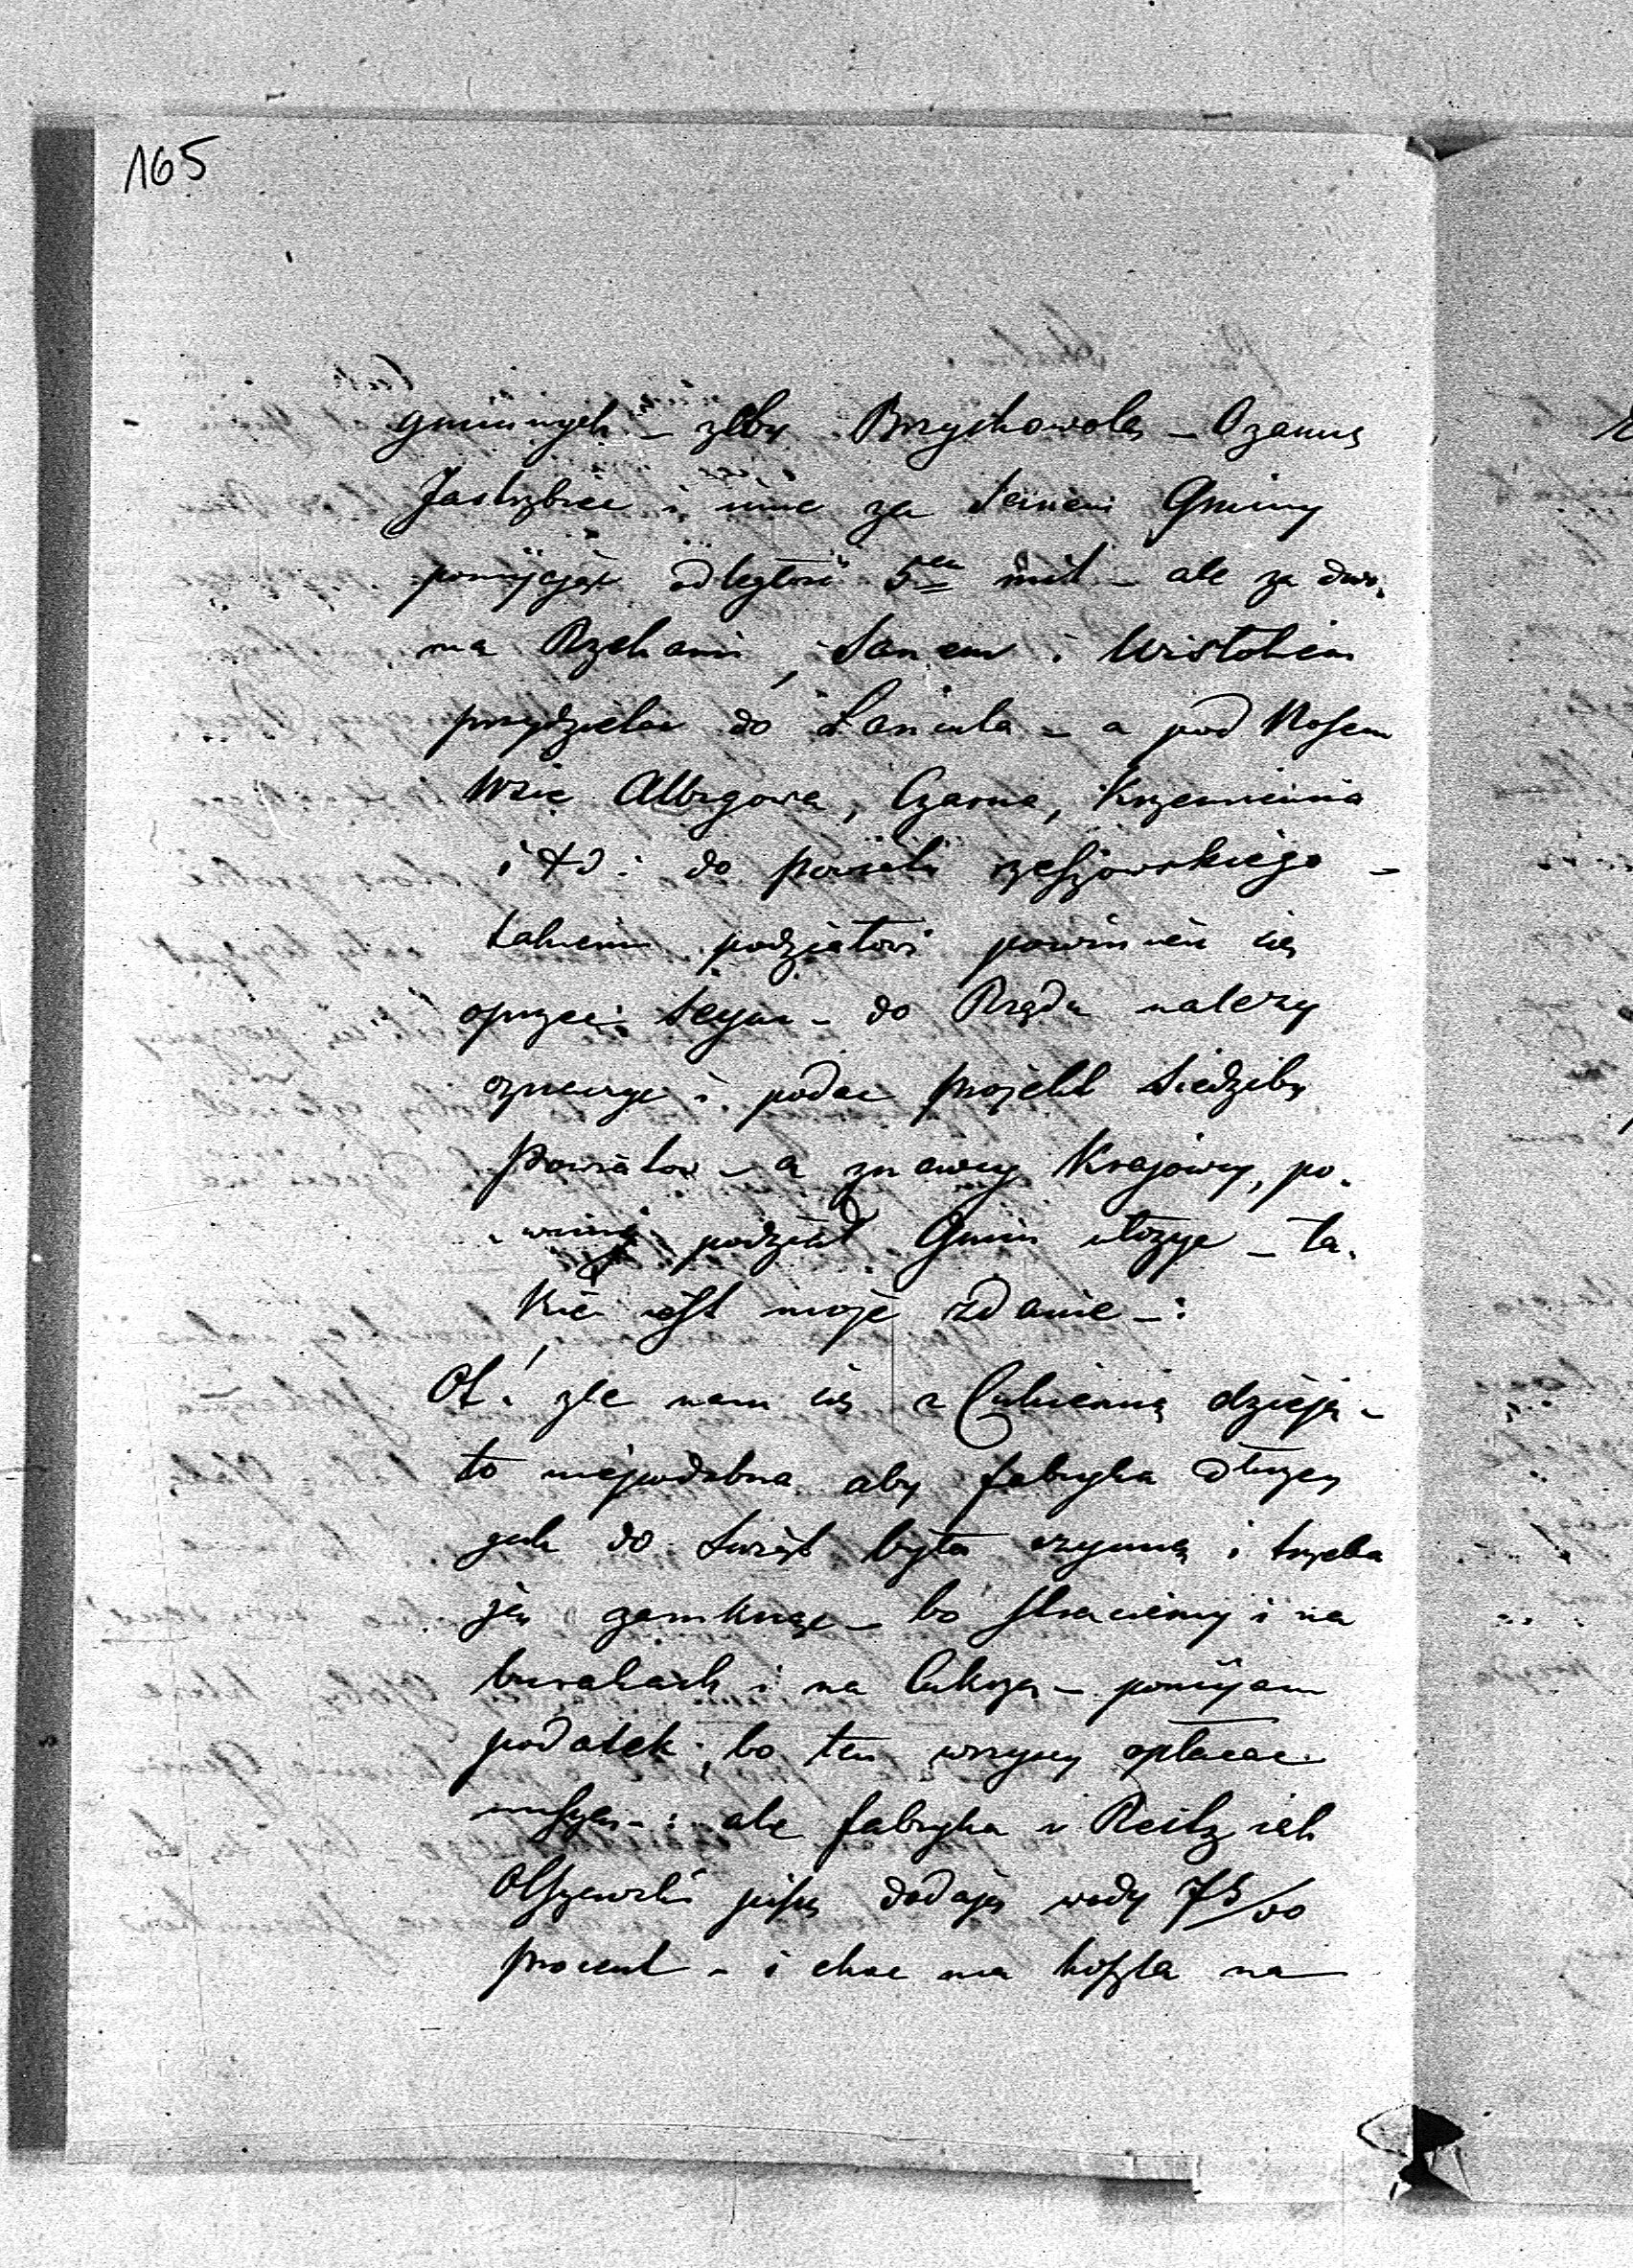 165
gminnych – żeby Brzychowolę – Ożannę
Jastrzbiec i inne za Sanem Gminy
pomijając odległość 5ciu mil – ale za dwo-
ma Rzekami, Sanem i Wisłokiem
przydzielać do Łańcuta – a pod Nosem
Wsie Albigowa, Czarna, Krzemienica
i t d: do powiatu rzeszowskiego –
takiemu podziałowi powinien się
oprzeć Seym – do Rządu należy
oznaczyć i podać projekt Siedziby
Powiatów – a znawcy Krajowy, po-
winni podział Gmin ułożyć – ta-
kie jest moje zdanie –:
Oh! źle nam się z Cukiernią dzieje –
to niepodobna aby fabryka dłużej
jak do Świąt była czynną i trzeba
ją zamknąć – bo straciemy i na
burakach i na Cukrze – pomijam
podatek, bo ten wszyscy opłacać
muszą –: ale fabryka i Reitzieh
Olszewski piszą dodają wody 75/00
procent – i choć ma koszta na